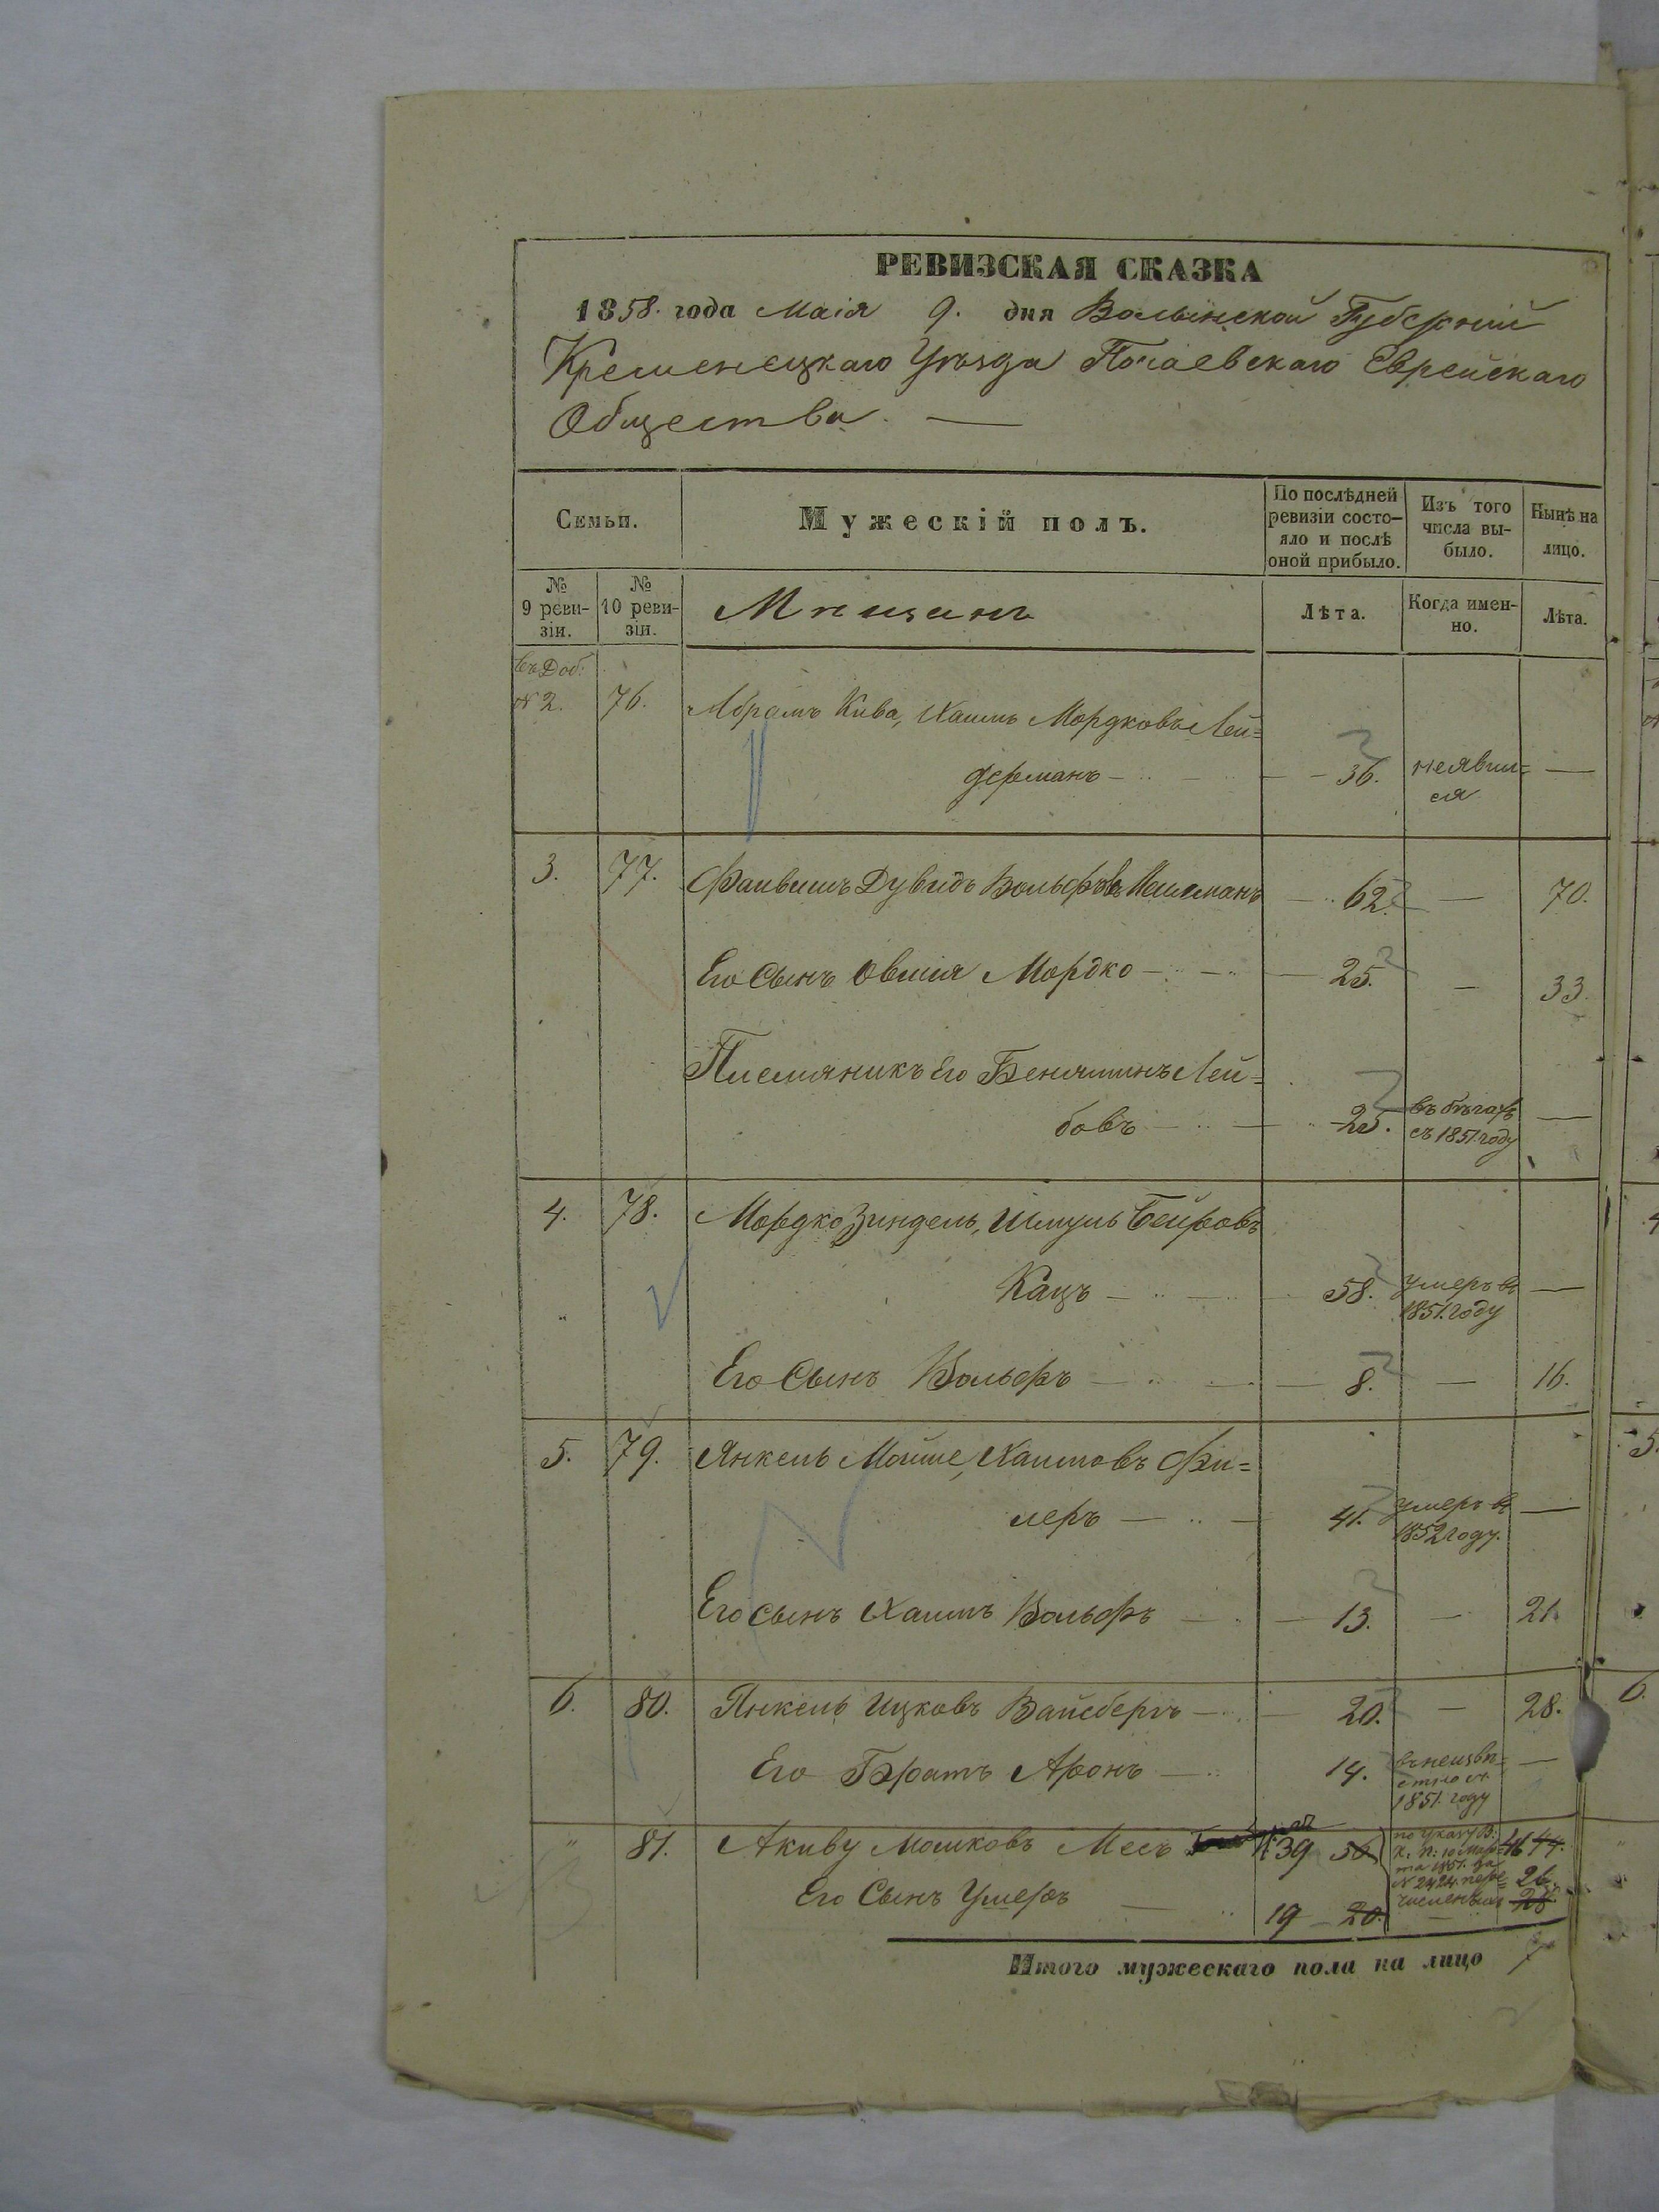 РЕВИЗСКАЯ СКАЗКА
1858. года Маія 9. дня Волынской Губерніи
Кременецкаго Уѣзда Почаевскаго Еврейскаго
Общества. —
Семьи.
Мужескій полъ.
По послѣдней ревизіи состо-
яло и послѣ
оной прибыло.
Изъ того
числа вы-
было.
Нынѣ на
лицо.
№
9 реви-
зіи.
№
10 реви-
зіи.
Мѣщанъ
Лѣта.
Когда имен-
но.
Лѣта.
въ Доб:
№ 2. 76. Абрамъ Кива, Хаимъ Мордковъ Лей=
дерманъ — 36. неявил=
ся —
3. 77. Файвишъ Дувидъ Вольфовъ — 62. — 70.
Его Сынъ Овшія Мордко — 25. — 33.
Племяникъ Его Беняминъ Лей=
бовъ — 25. въ бѣгахъ
съ 1851. году —
4. 78. Мордко Зиндель, Шмуль Беировъ
Кацъ — 58. умеръ въ
1851. году —
Его Сынъ Вольфъ — 8. — 16.
5. 79. Янкель Мойше, Хаимовъ Фи=
леръ — 41. умеръ въ
1852 году. —
Его сынъ Хаимъ Вольфъ — 13. — 21.
6. 80. Янкель Ицковъ Вайсбергъ — 20. — 28.
Его Братъ Аронъ — 14. въ неизвѣ=
стно съ
1851. году —
" 81. Акиву Мошковъ Месъ 39 50 по указу В:
К. П: 10 Мар=
та 1851. за
№ 2424. пере=
численъ 46 44.
Его Сынъ Умеръ — 19 20. — 26. 28.
Итого мужескаго пола на лицо 7